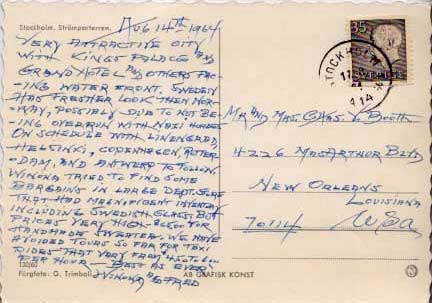 Stockholm. Strömparterren.
AUG 14TH 1964
VERY ATTRACTIVE CITY
WITH KINGS PALACE
GRAND HOTEL OTHERS FAC-
-ING WATER FRONT. SWEDEN
HAS FRESHER LOOK THEN NOR-
WAY, POSSIBLY DUE TO NOT BE-
ING OVERRUN WITH NAZI HORDES
ON SCHEDULE WITH LENINGRAD,
HELSINKI, COPENHAGEN, ROTTER-
DAM, AND ANTWERP TO FOLLOW.
WINONA TRIED TO FIND SOME
BARGAINS IN LARGE DEPT. STORE
THAT HAD MAGNIFICENT INVENTORY
INCLUDING SWEDISH GLASS. BUT
PRICES VERY HIGH - FOR
HANDMADE SWEATER. WE HAVE
AVOIDED TOURS SO FAR FOR TAXI
RIDES THAT VARY FROM TO
PER HOUR - BEST AS EVER
WINONA AND FRED
Färgfoto: G. Trimboli
AB GRAFISK KONST
35
STOCKHOLM
SVERIGE
MR AND MRS. CHAS. V. BOOTH
4226 MACARTHUR BLVD
NEW ORLEANS
LOUISIANA
70114 USA